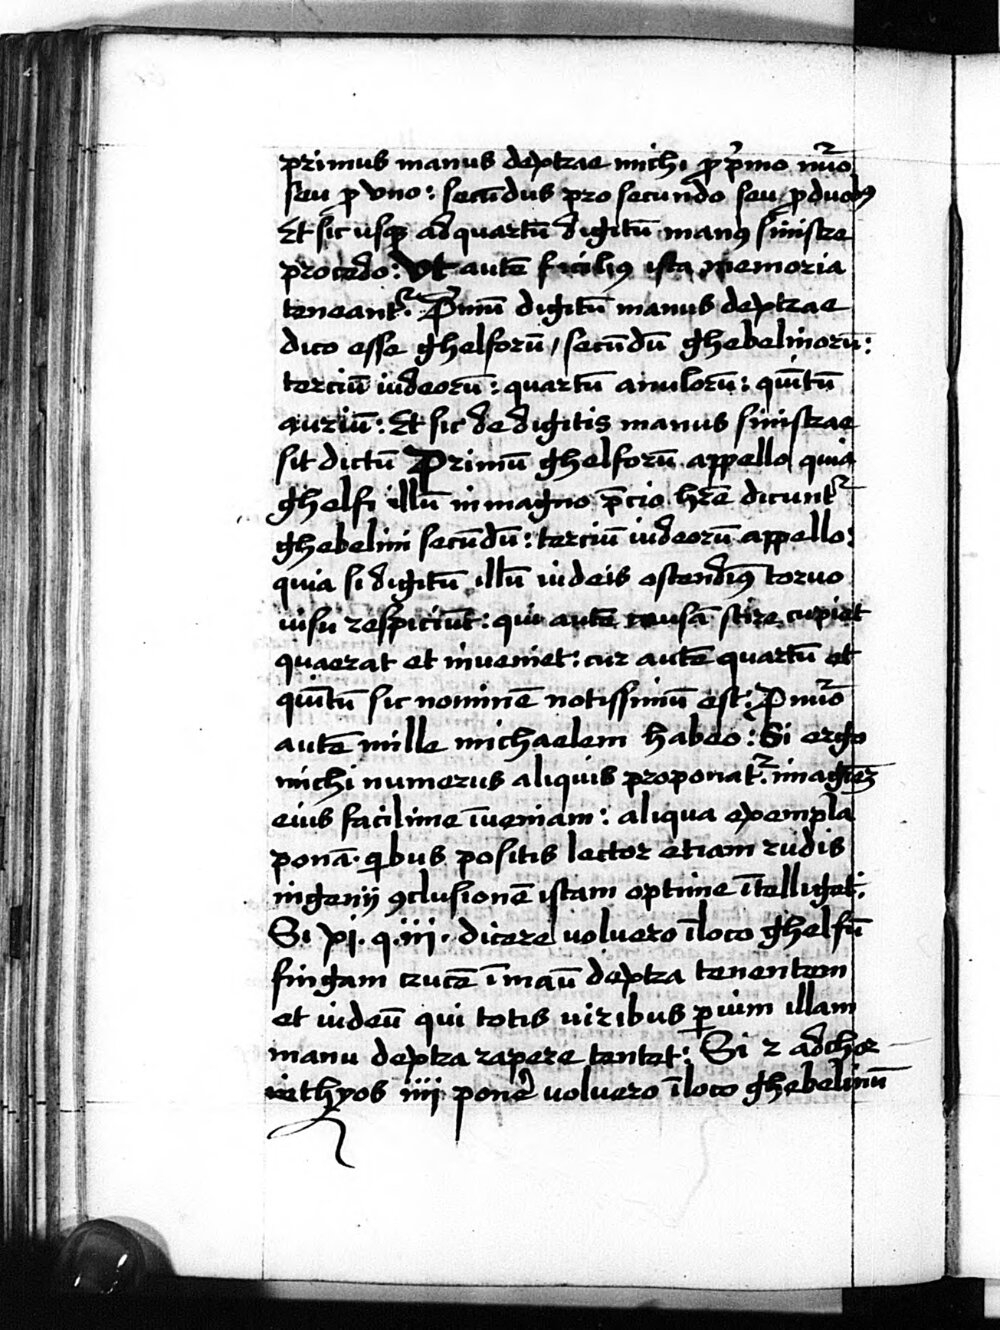 primus manus dextrae michi ꝓ p̄mo nūo
seu ꝓ vno: secūdus pro secundo seu ꝓ duobꝫ
Et sic usqꝫ ad quartū digitū manꝰ sinistre
procedo: Vt autē faciliꝰ ista memoria
teneantᷣ. P̄mū digitū manus dextrae
dico esse ghelforū / secūdū ghebelinorū:
terciū iudeorū: quartū anulorū: quītū
auriū: Et sic de digitis manus sinistrae
sit dictū Primū ghelforū appello quia
ghelfi illū in magno p̄cio hr̄e dicuntᷣ
ghebelini secūdū: terciū iudeorū appello:
quia si digitū illū iudeis ostendimꝰ toruo
uisu respiciūt: qui autē causā scire cupiat
quaerat et inueniet: cur autē quartū et
quītū sic nominē notissimū est: P nūo
autē mille michaelem habeo: Si ergo
michi numerus aliquis proponatᷣ. imagīeꝫ
eius facilime īueniam: aliqua exempla
ponā. qͥbus positis lector etiam rudis
ingenij ꝯclusionē istam optime ītelliget:
Si xj. q. iij. dicere uoluero ī loco ghelfū
fingam crucē ī manū dextra tenentem
et iudeū qui totis uiribus ꝑ uim illam
manu dextra rapere tentet: Si 2 ad chor
inthyos iiij pone͛ uoluero ī loco ghebelinū